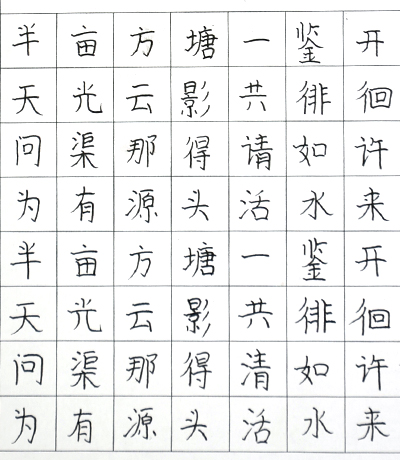 半亩方塘一鉴开
天光云影共徘徊
问渠那得请如许
为有源头活水来
半亩方塘一鉴开
天光云影共徘徊
问渠那得清如许
为有源头活水来